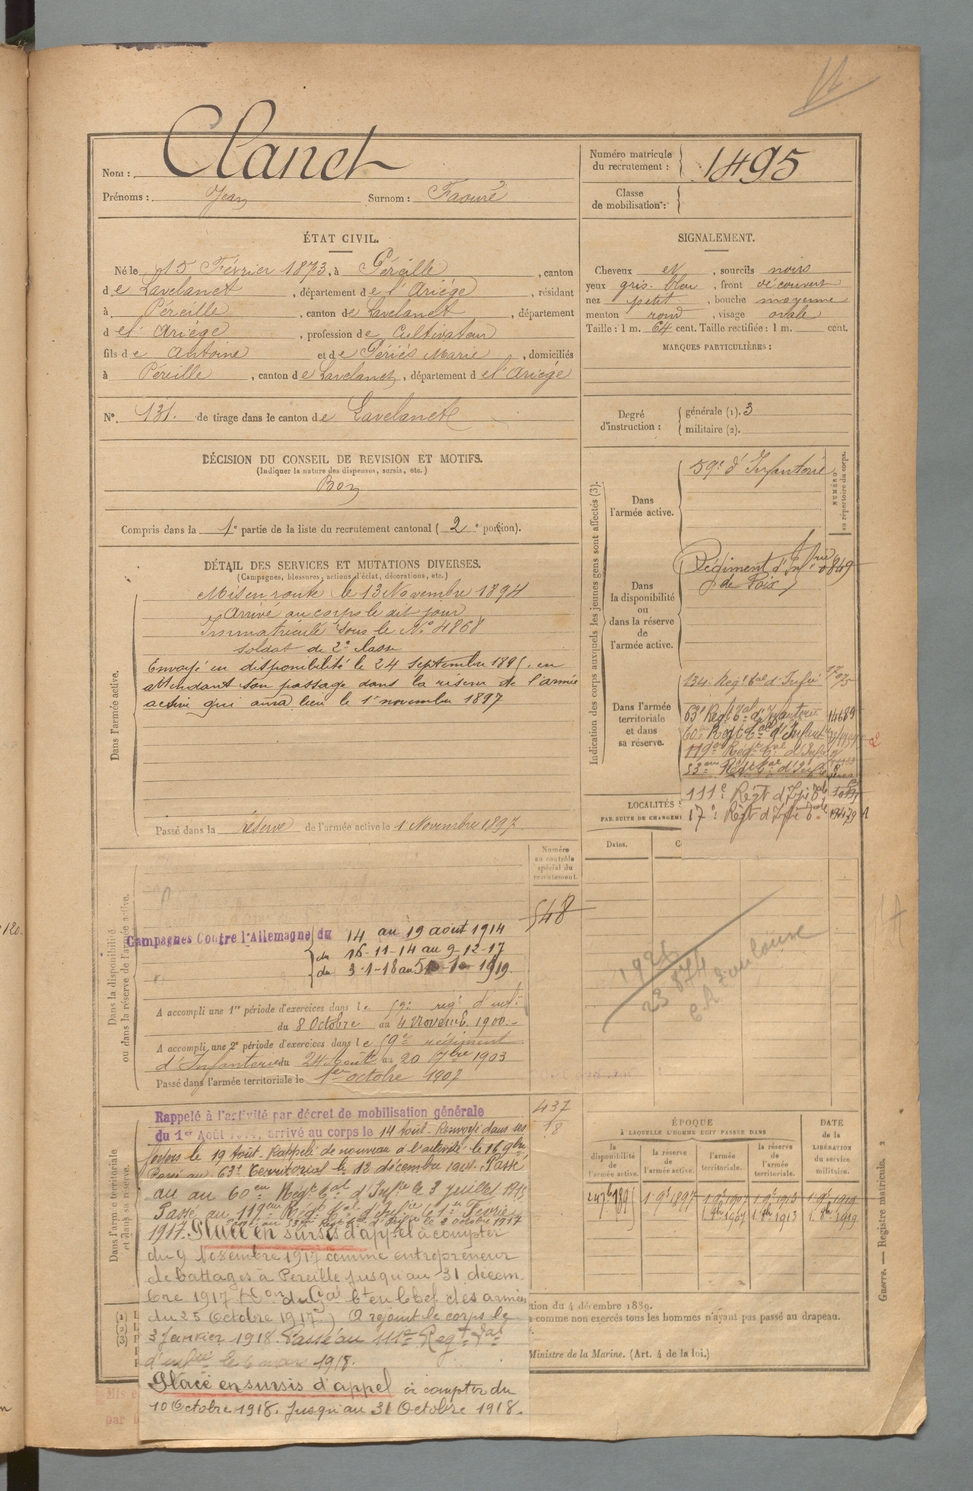 Nom : Clanet
Prénoms : Jean Surnom : Faouré
Numéro matricule du recrutement : 1495
Classe de mobilisation :
ÉTAT CIVIL.
Né le 15 Février 1873, à Péreille, canton
de Lavelanet, département de l'Ariège, résidant
à Péreille, canton de Lavelanet, département
de l'Ariège, profession de Cultivateur
fils de Antoine et de Périés Marie, domiciliés
à Péreille, canton de Lavelanet, département de l'Ariège
N° 131. de tirage dans le canton de Lavelanet
DÉCISION DU CONSEIL DE REVISION ET MOTIFS.
(Indiquer la nature des dispenses, sursis, etc.)
Bon
Compris dans la 1e partie de la liste du recrutement cantonal (2e portion).
SIGNALEMENT.
Cheveux et, sourcils noirs
yeux gris bleu, front découvert
nez petit, bouche moyenne
menton rond, visage ovale
Taille : 1 m. 64 cent. Taille rectifiée : 1 m. cent.
MARQUES PARTICULIÈRES :
Degré d'instruction : générale (1). 3
militaire (2).
DÉTAIL DES SERVICES ET MUTATIONS DIVERSES.
(Campagnes, blessures, actions d'éclat, décorations, etc.)
Dans l'armée active.
Mis en route le 13 Novembre 1894
Arrivé au corps le dit jour
Immatriculé sous le N° 4868
soldat de 2e classe
Envoyé en disponibilité le 24 septembre 1895, en
attendant son passage dans la réserve de l'armée
active qui aura lieu le 1er novembre 1897
Passé dans la réserve de l'armée active le 1 Novembre 1897
Indication des corps auxquels les jeunes gens sont affectés (3).
NUMÉRO au répertoire du corps.
Dans l'armée active.
59e d'Infanterie
Dans la disponibilité ou dans la réserve de l'armée active.
Régiment d'Infrie 0849
de Foix
Dans l'armée territoriale et dans sa réserve.
134e Régt tal d'Infrie
63e Regt tal d'Infanterie 14689
60e Régt tal d'Infant
119e Régt tal d'Infrie
53e Régt tal d'Infrie
111e Régt d'Infie tale
17e Régt d'Infie tale 19479
LOCALITÉS
PAR SUITE DE CHANGEM
Dates.
Dans la disponibilité ou dans la réserve de l'armée active.
Numéro au contrôle spécial du recrutement.
548
Campagnes Contre l'Allemagne du 14 au 19 août 1914
du 16-11-14 au 9-12-17
du 3-1-18 au 1919.
A accompli une 1re période d'exercices dans le 59e reg d'inf.
du 8 Octobre au 4 Novemb. 1900.
A accompli une 2e période d'exercices dans le 59e régiment
d'Infanterie du 24 Août au 20 7bre 1903
Passé dans l'armée territoriale le 1er octobre 1907
1926
23 874
CR Toulouse
Dans l'armée territoriale et dans sa réserve.
437
18
Rappelé à l'activité par décret de mobilisation générale
du 1er Août 1914, arrivé au corps le 14 Août. Renvoyé dans ses
foyers le 19 Août. Rappelé de nouveau à l'activité le 16 9bre
Passé au 63e territorial le 13 décembre 1914. Passé
au au 60ème Régt tal d'Infrie le 3 juillet 1915
Passé au 119ème Régt tal d'Infrie le 1er Février
1917. Placé en sursis d'appel à compter
du 9 Décembre 1917 comme entrepreneur
de battages à Pereille jusqu'au 31 décem-
bre 1917
du 25 Octobre 1917) A rejoint le corps le
3 Janvier 1918. Passé au 111e Régt tal
d'infie le 6 mars 1918.
Placé en sursis d'appel à compter du
10 Octobre 1918. Jusqu'au 31 Octobre 1918.
ÉPOQUE
À LAQUELLE L'HOMME DOIT PASSER DANS
la disponibilité de l'armée active.
la réserve de l'armée active.
l'armée territoriale.
la réserve de l'armée territoriale.
DATE de la LIBÉRATION du service militaire.
1 9e 1897
tion du 4 décembre 1889.
comme non exercés tous les hommes n'ayant pas passé au drapeau.
Ministre de la Marine. (Art. 4 de la loi.)
Guerre. — Registre matricule. 2